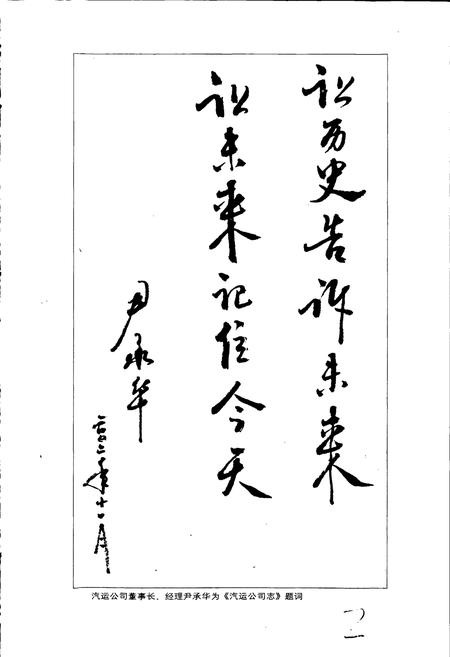 让历史告诉未来
让未来记住今天
尹承华
二〇〇二年十一月
汽运公司董事长、经理尹承华为《汽运公司志》题词